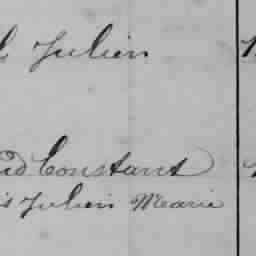 Julien
Constant
Julien Marie